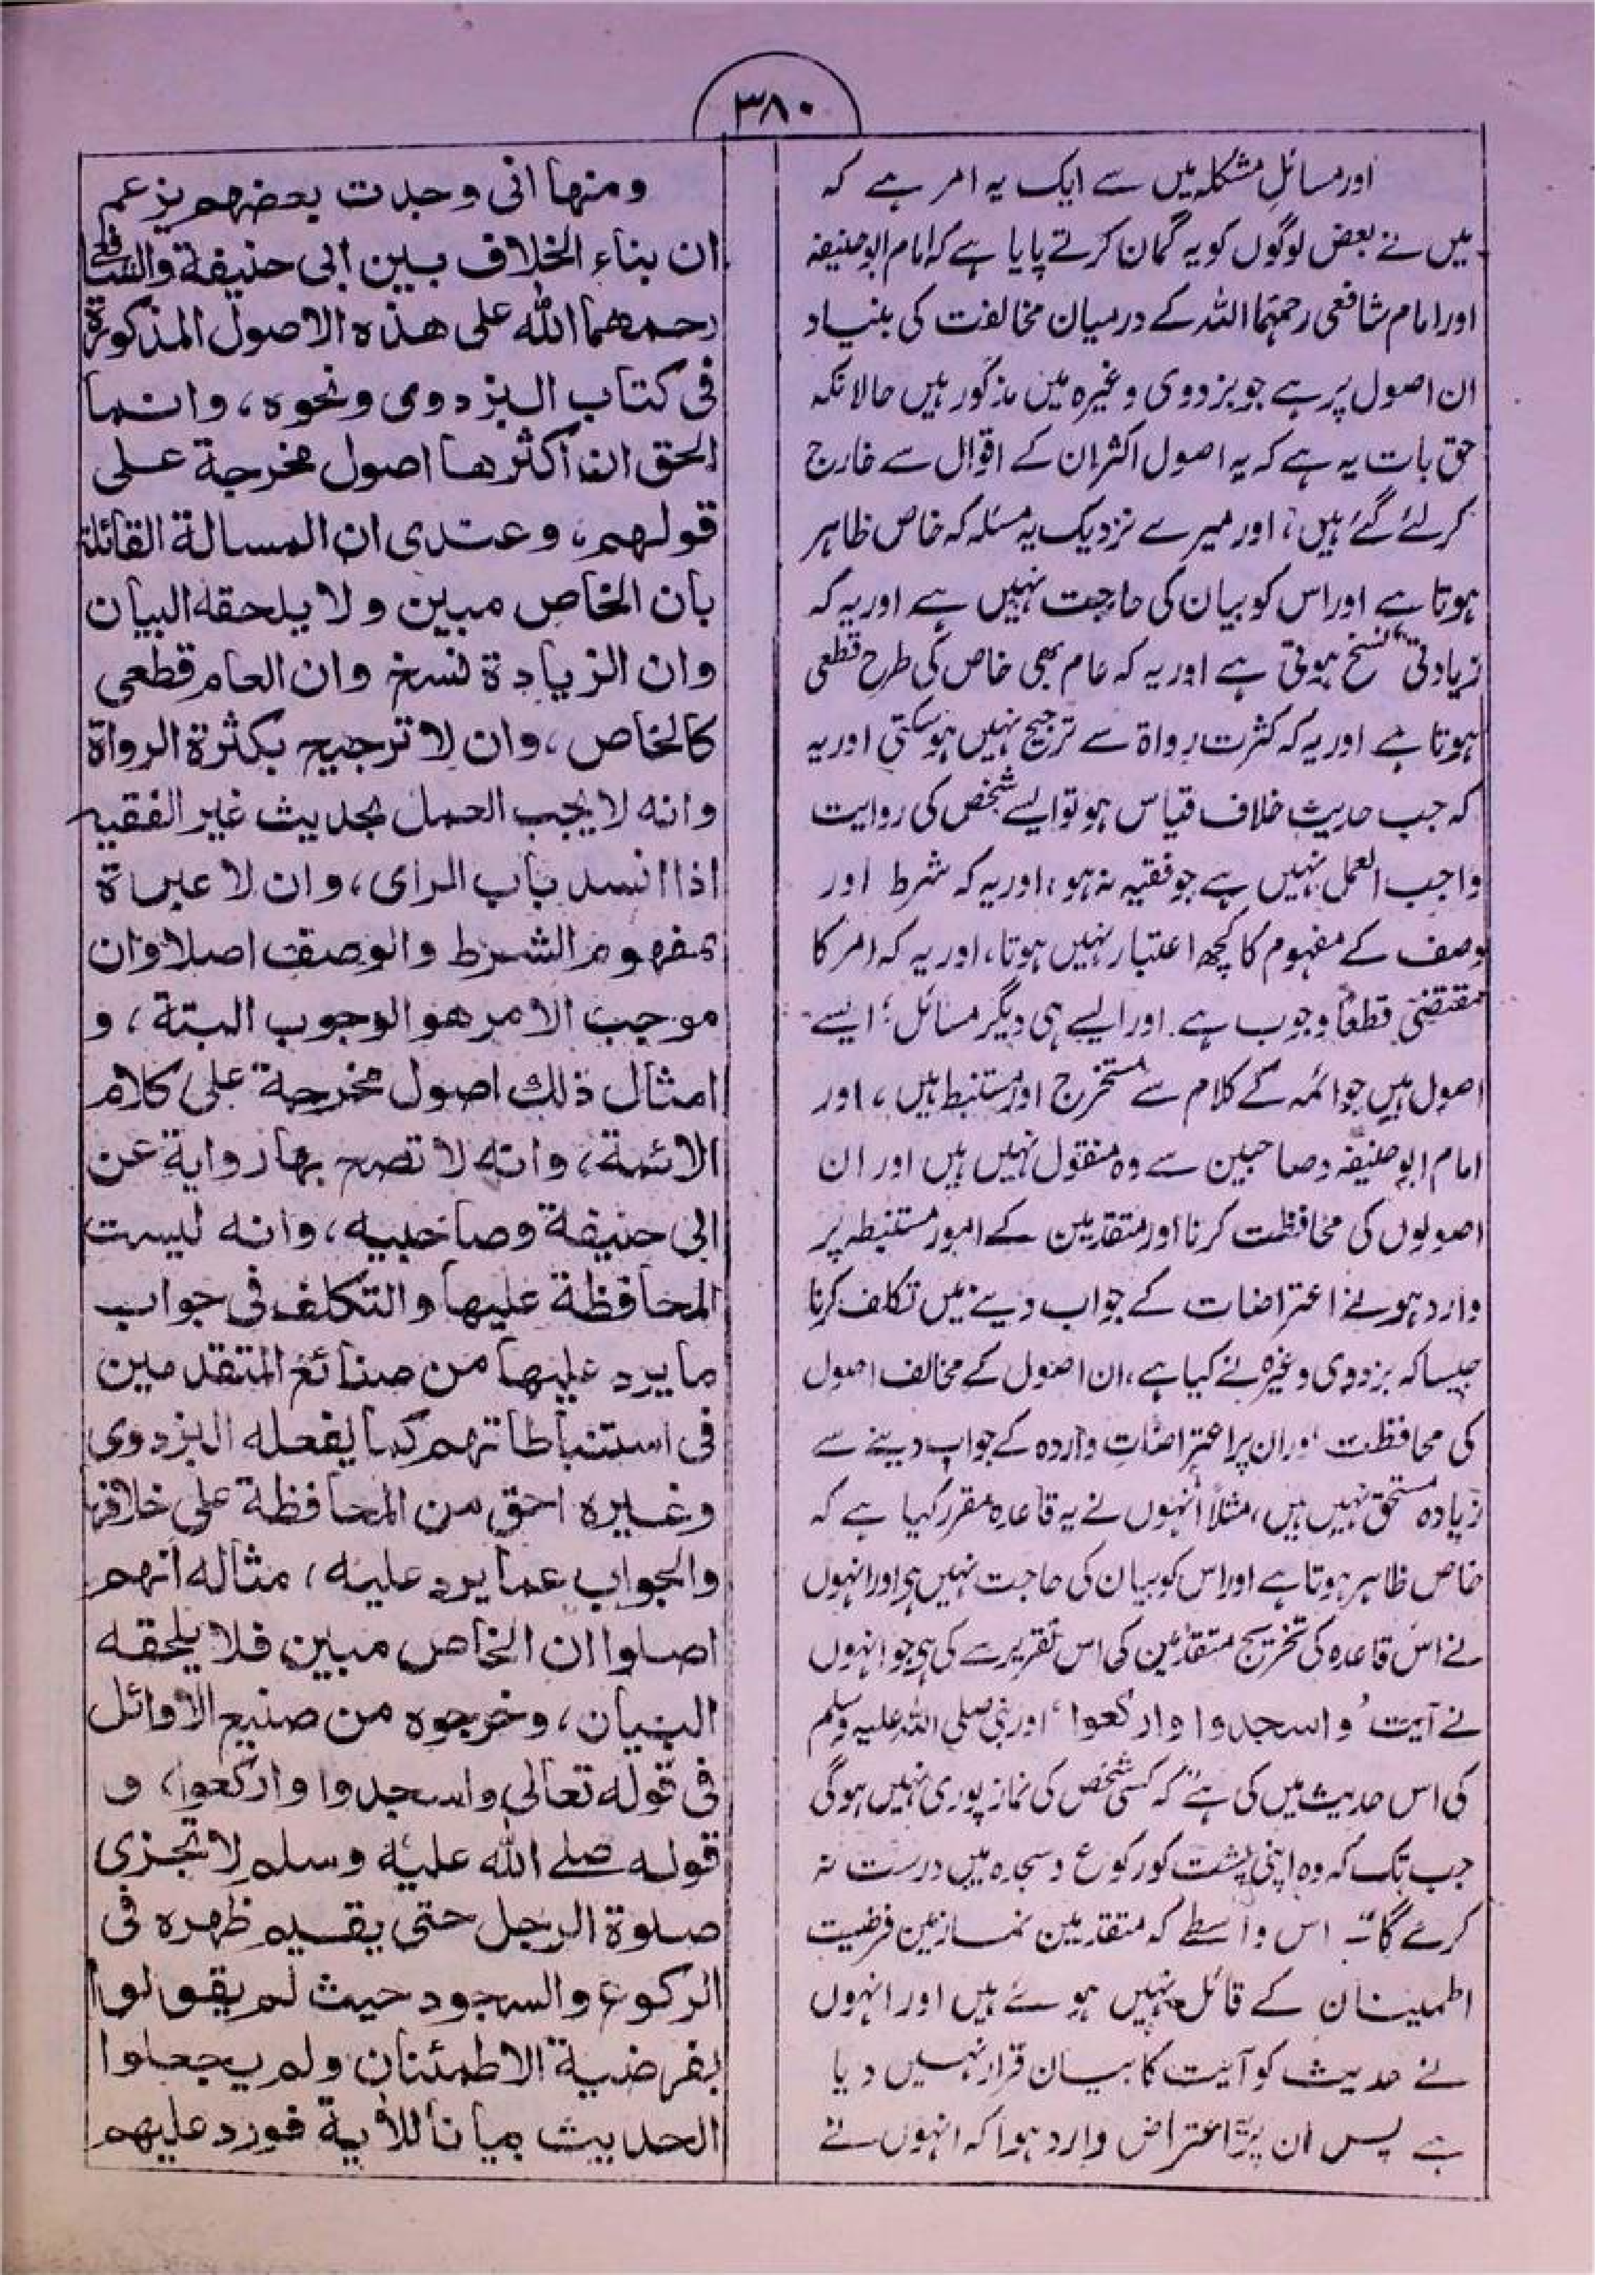 ٣٨٠
اور مسائلِ مشکلہ میں سے ایک یہ امر ہے کہ
میں نے بعض لوگوں کو یہ گمان کرتے پایا ہے کہ امام ابو حنیفہ
اور امام شافعی رحمہما اللہ کے درمیان مخالفت کی بنیاد
ان اصول پر ہے جو بزدوی وغیرہ میں مذکور ہیں حالانکہ
حق بات یہ ہے کہ یہ اصول اکثر ان کے اقوال سے خارج
کرلئے گئے ہیں، اور میرے نزدیک یہ مسئلہ کہ خاص ظاہر
ہوتا ہے اور اس کو بیان کی حاجت نہیں ہے اور یہ کہ
زیادتی نسخ ہوتی ہے اور یہ کہ عام بھی خاص کی طرح قطعی
ہوتا ہے اور یہ کہ کثرت رواۃ سے ترجیح نہیں ہوسکتی اور یہ
کہ جب حدیث خلاف قیاس ہو تو ایسے شخص کی روایت
واجب العمل نہیں ہے جو فقیہ نہ ہو، اور یہ کہ شرط اور
وصف کے مفہوم کا کچھ اعتبار نہیں ہوتا، اور یہ کہ امر کا
مقتضیٰ قطعاً وجوب ہے اور ایسے ہی دیگر مسائل؛ ایسے
اصول ہیں جو ائمہ کے کلام سے مستخرج اور مستنبط ہیں، اور
امام ابو حنیفہ و صاحبین سے وہ منقول نہیں ہیں اور ان
اصولوں کی محافظت کرنا اور متقدمین کے امور مستنبطہ پر
وارد ہونے اعتراضات کے جواب دینے میں تکلف کرنا
جیسا کہ بزدوی وغیرہ نے کیا ہے، ان اصول کے مخالف اصول
کی محافظت اور ان پر اعتراضات واردہ کے جواب دینے سے
زیادہ مستحق نہیں ہیں، مثلاً اُنہوں نے یہ قاعدہ مقرر کہا ہے کہ
خاص ظاہر ہوتا ہے اور اس کو بیان کی حاجت نہیں ہی اور انہوں
نے اس قاعدہ کی تخریج متقدمین کی اس تقریر سے کی ہی جو انہوں
نے آیت ’واسجدوا وارکعوا‘ اور نبی صلی اللہ علیہ وسلم
کی اس حدیث میں کی ہے "کہ کسی شخص کی نماز پوری نہیں ہوگی
جب تک کہ وہ اپنی پشت کو رکوع و سجدہ میں درست نہ
کرے گا" اس واسطے کہ متقدمین نماز میں فرضیت
اطمینان کے قائل نہیں ہوئے ہیں اور انہوں
نے حدیث کو آیت کا بیان قرار نہیں دیا
ہے پس ان پر اعتراض وارد ہوا کہ انہوں نے
ومنھا انی وجدت بعضھم یزعم
ان بناء الخلاف بین ابی حنیفۃ والشافعی
رحمھما اللہ علی ھذہ الاصول المذکورۃ
فی کتاب البزدوی ونحوہ، وانما
الحق ان اکثرھا اصول مخرجۃ علی
قولھم، وعندی ان المسالۃ القائلۃ
بان الخاص مبین ولا یلحقہ البیان
وان الزیادۃ نسخ وان العام قطعی
کالخاص، وان لا ترجیح بکثرۃ الرواۃ
وانہ لا یجب العمل بحدیث غیر الفقیہ
اذا انسد باب الرای، وان لا عبرۃ
بمفھوم الشرط والوصف اصلا وان
موجب الامر ھو الوجوب البتۃ، و
امثال ذلک اصول مخرجۃ علی کلام
الائمۃ، وانہ لا تصح بھا روایۃ عن
ابی حنیفۃ وصاحبیہ، وانہ لیست
المحافظۃ علیھا والتکلف فی جواب
ما یرد علیھا من صنائع المتقدمین
فی استنباطاتھم کما یفعلہ البزدوی
وغیرہ احق من المحافظۃ علی خلافھا
والجواب عما یرد علیہ، مثالہ انھم
اصلوا ان الخاص مبین فلا یلحقہ
البیان، وخرجوہ من صنیع الاوائل
فی قولہ تعالی واسجدوا وارکعوا، و
قولہ صلے اللہ علیہ وسلم لا تجزی
صلوۃ الرجل حتی یقیم ظھرہ فی
الرکوع والسجود حیث لم یقولوا
بفرضیۃ الاطمئنان ولم یجعلوا
الحدیث بیانا للآیۃ فورد علیھم